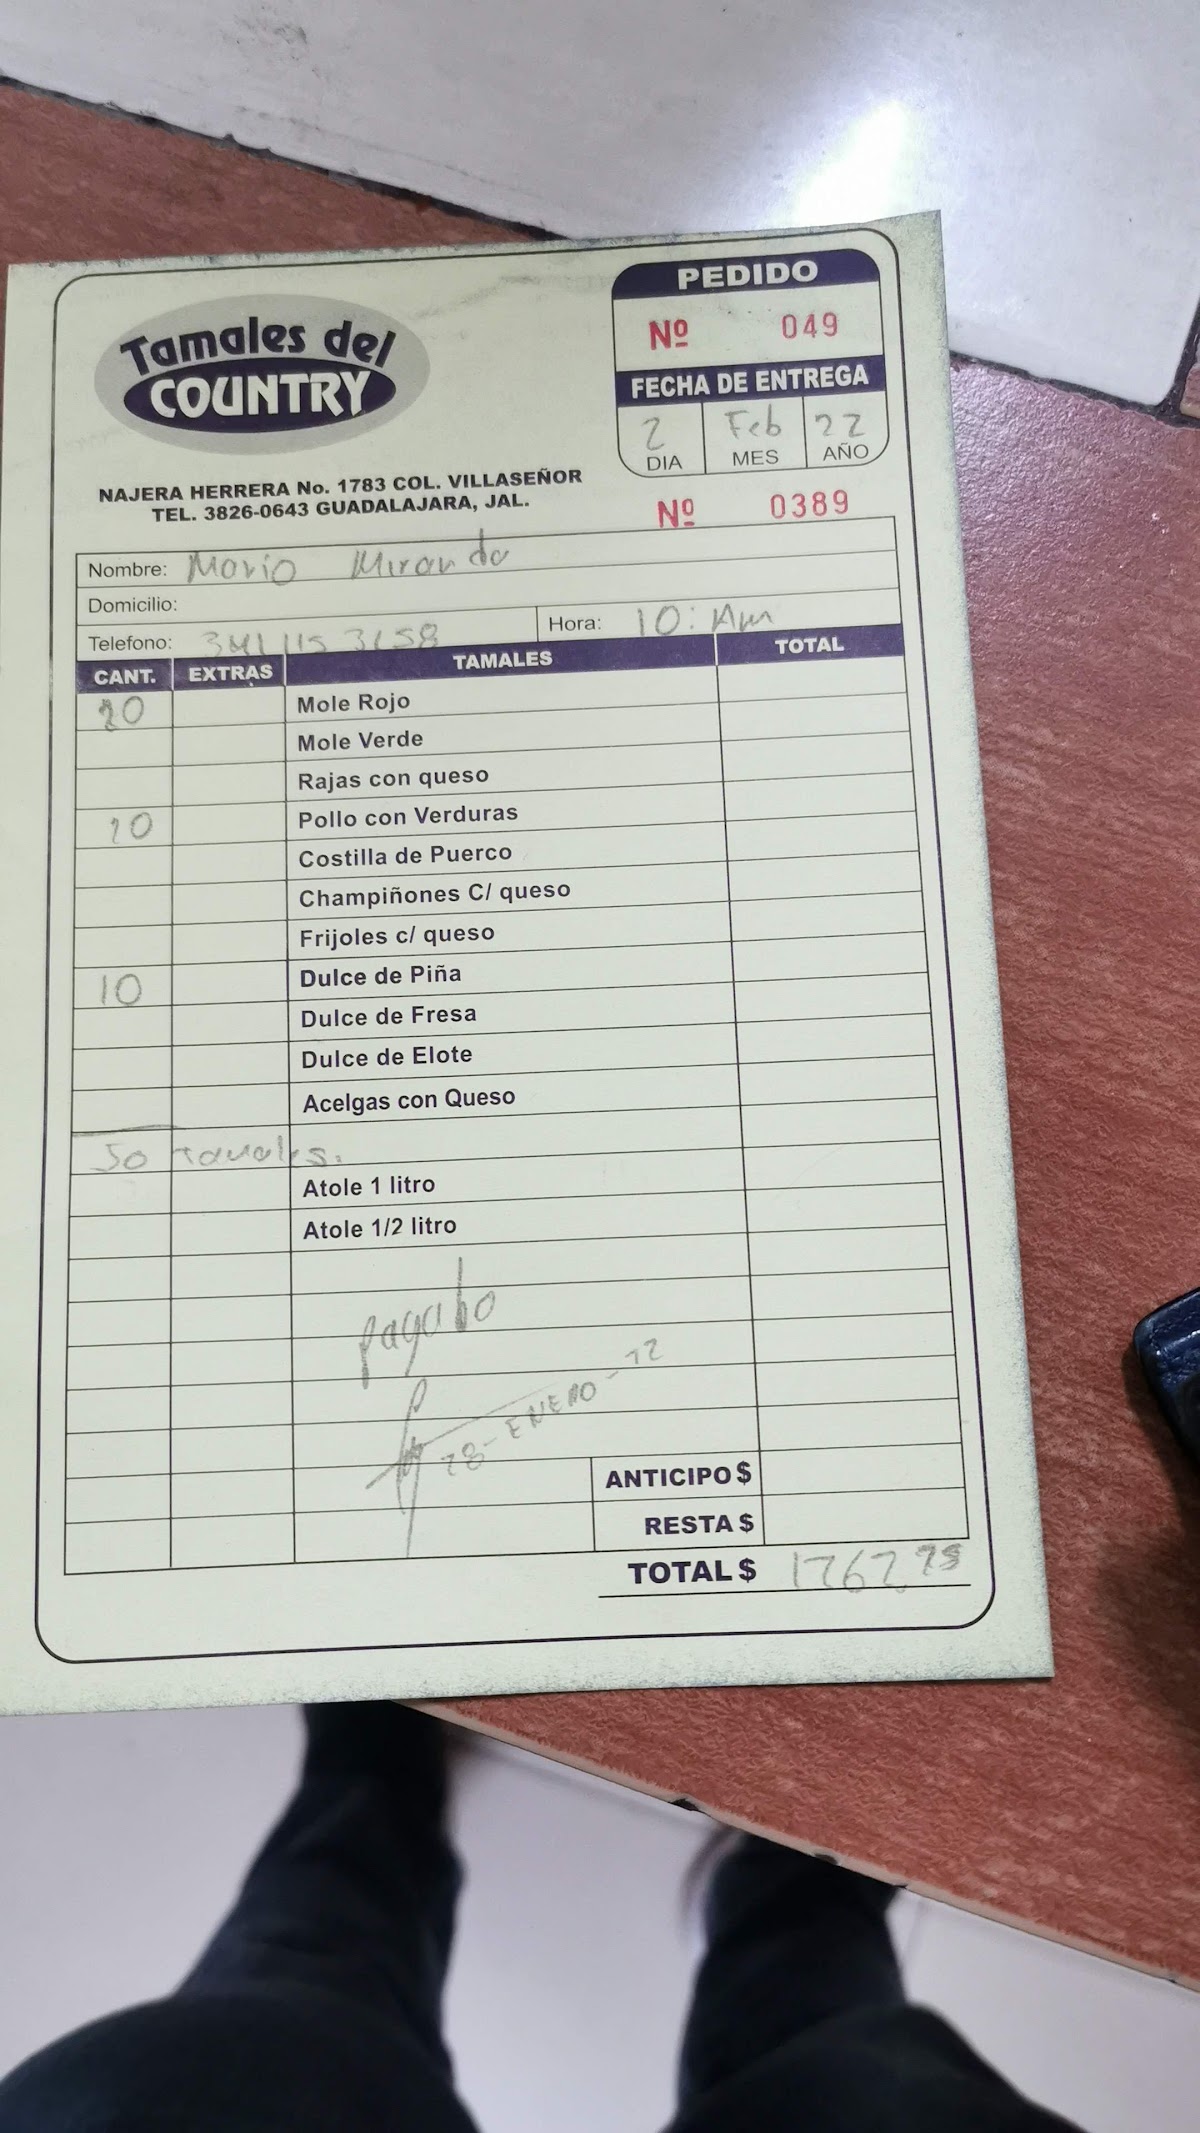 Tamales del
COUNTRY
NAJERA HERRERA No. 1783 COL. VILLASEÑOR
TEL. 3826-0643 GUADALAJARA, JAL.
PEDIDO
Nº 049
FECHA DE ENTREGA
2 Feb 22
DIA MES AÑO
Nº 0389
Nombre: Mario Miranda
Domicilio:
Telefono: Hora: 10: Am
CANT. EXTRAS TAMALES TOTAL
20 Mole Rojo
Mole Verde
Rajas con queso
20 Pollo con Verduras
Costilla de Puerco
Champiñones C/ queso
Frijoles c/ queso
10 Dulce de Piña
Dulce de Fresa
Dulce de Elote
Acelgas con Queso
50 tamales.
Atole 1 litro
Atole 1/2 litro
pagado
28-ENERO-22
ANTICIPO $
RESTA $
TOTAL $